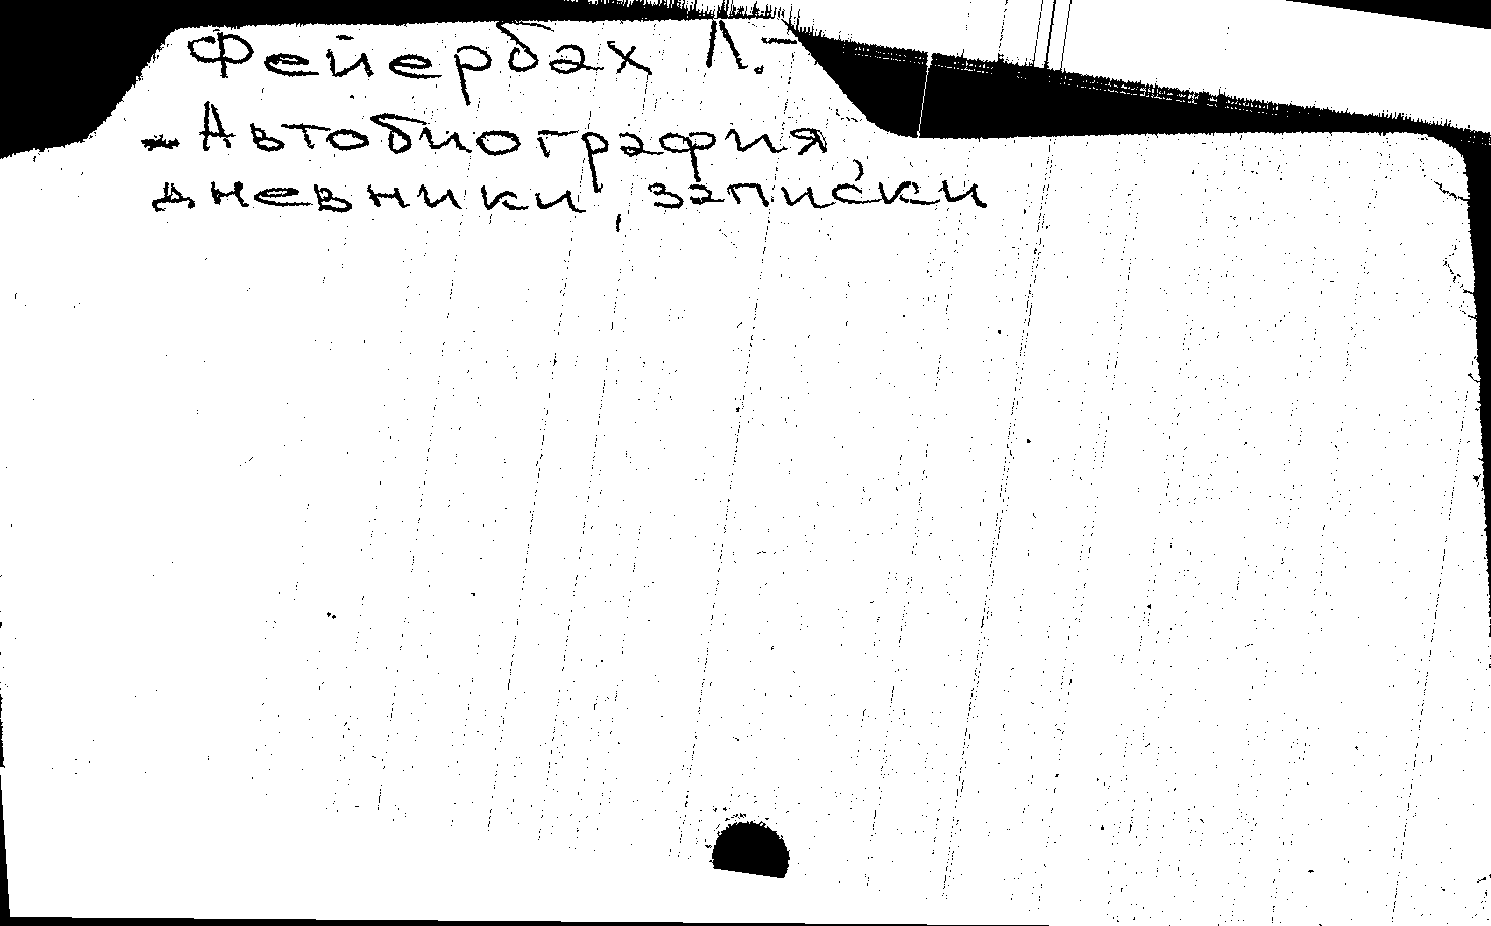 Фейербах Л.-
- Автобиография,
дневники, записки